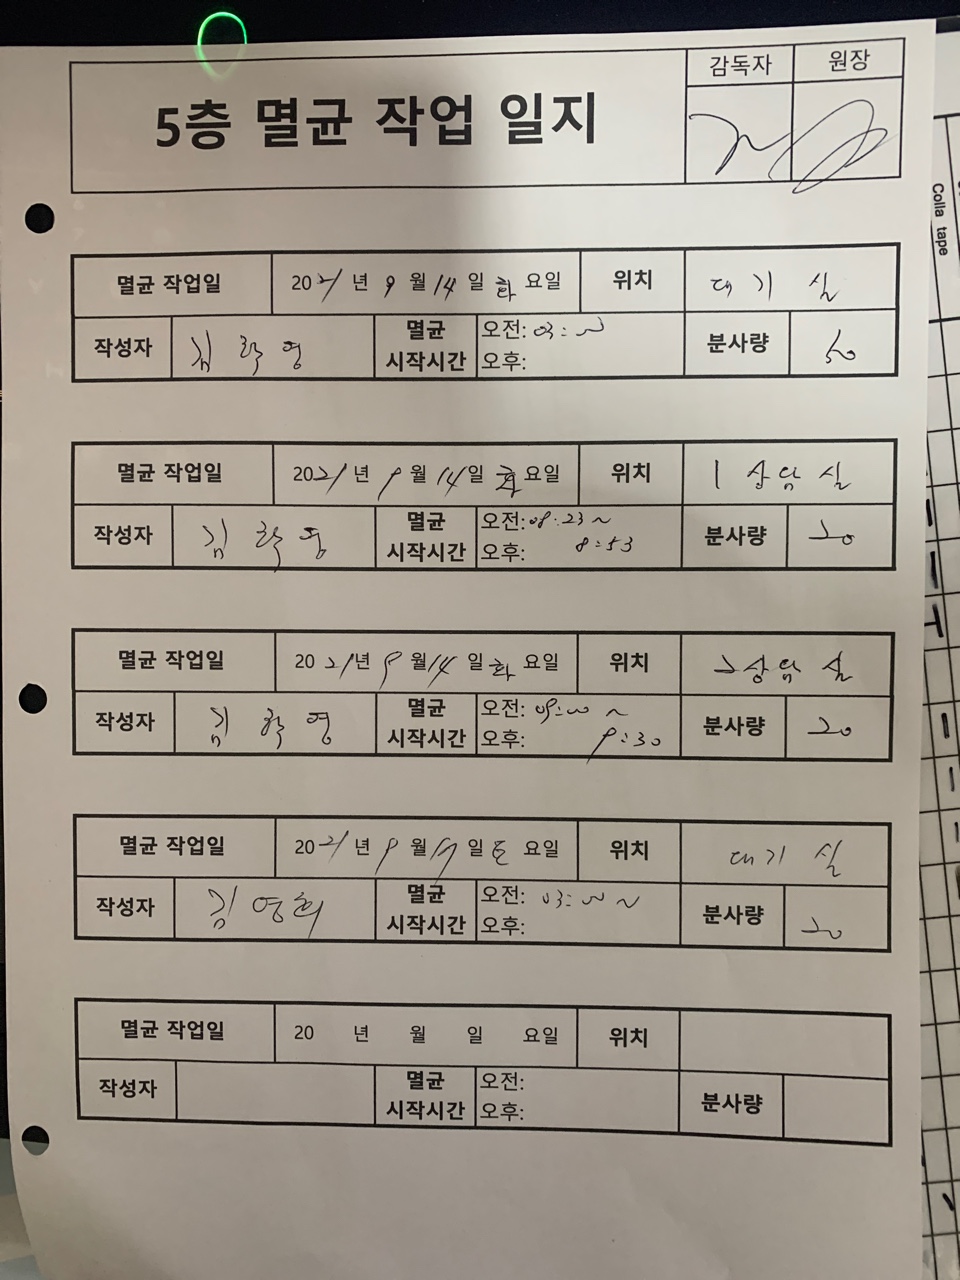 감독자 원장
5층 멸균 작업 일지
멸균 작업일 2021년 9월 14일 화요일 위치 대기실
작성자 김학영 멸균 시작시간 오전: 03: 분사량 50
오후:
멸균 작업일 2021년 9월 14일 화요일 위치 1상담실
작성자 김학영 멸균 시작시간 오전: 08:23~ 분사량 20
오후: 8:53
멸균 작업일 2021년 9월 14일 화요일 위치 2상담실
작성자 김학영 멸균 시작시간 오전: 09:00 ~ 분사량 20
오후: 9:30
멸균 작업일 2021년 9월 일 토요일 위치 대기실
작성자 김영희 멸균 시작시간 오전: 03:00 ~ 분사량 20
오후:
멸균 작업일 20 년 월 일 요일 위치
작성자 멸균 시작시간 오전: 분사량
오후:
Colla tape